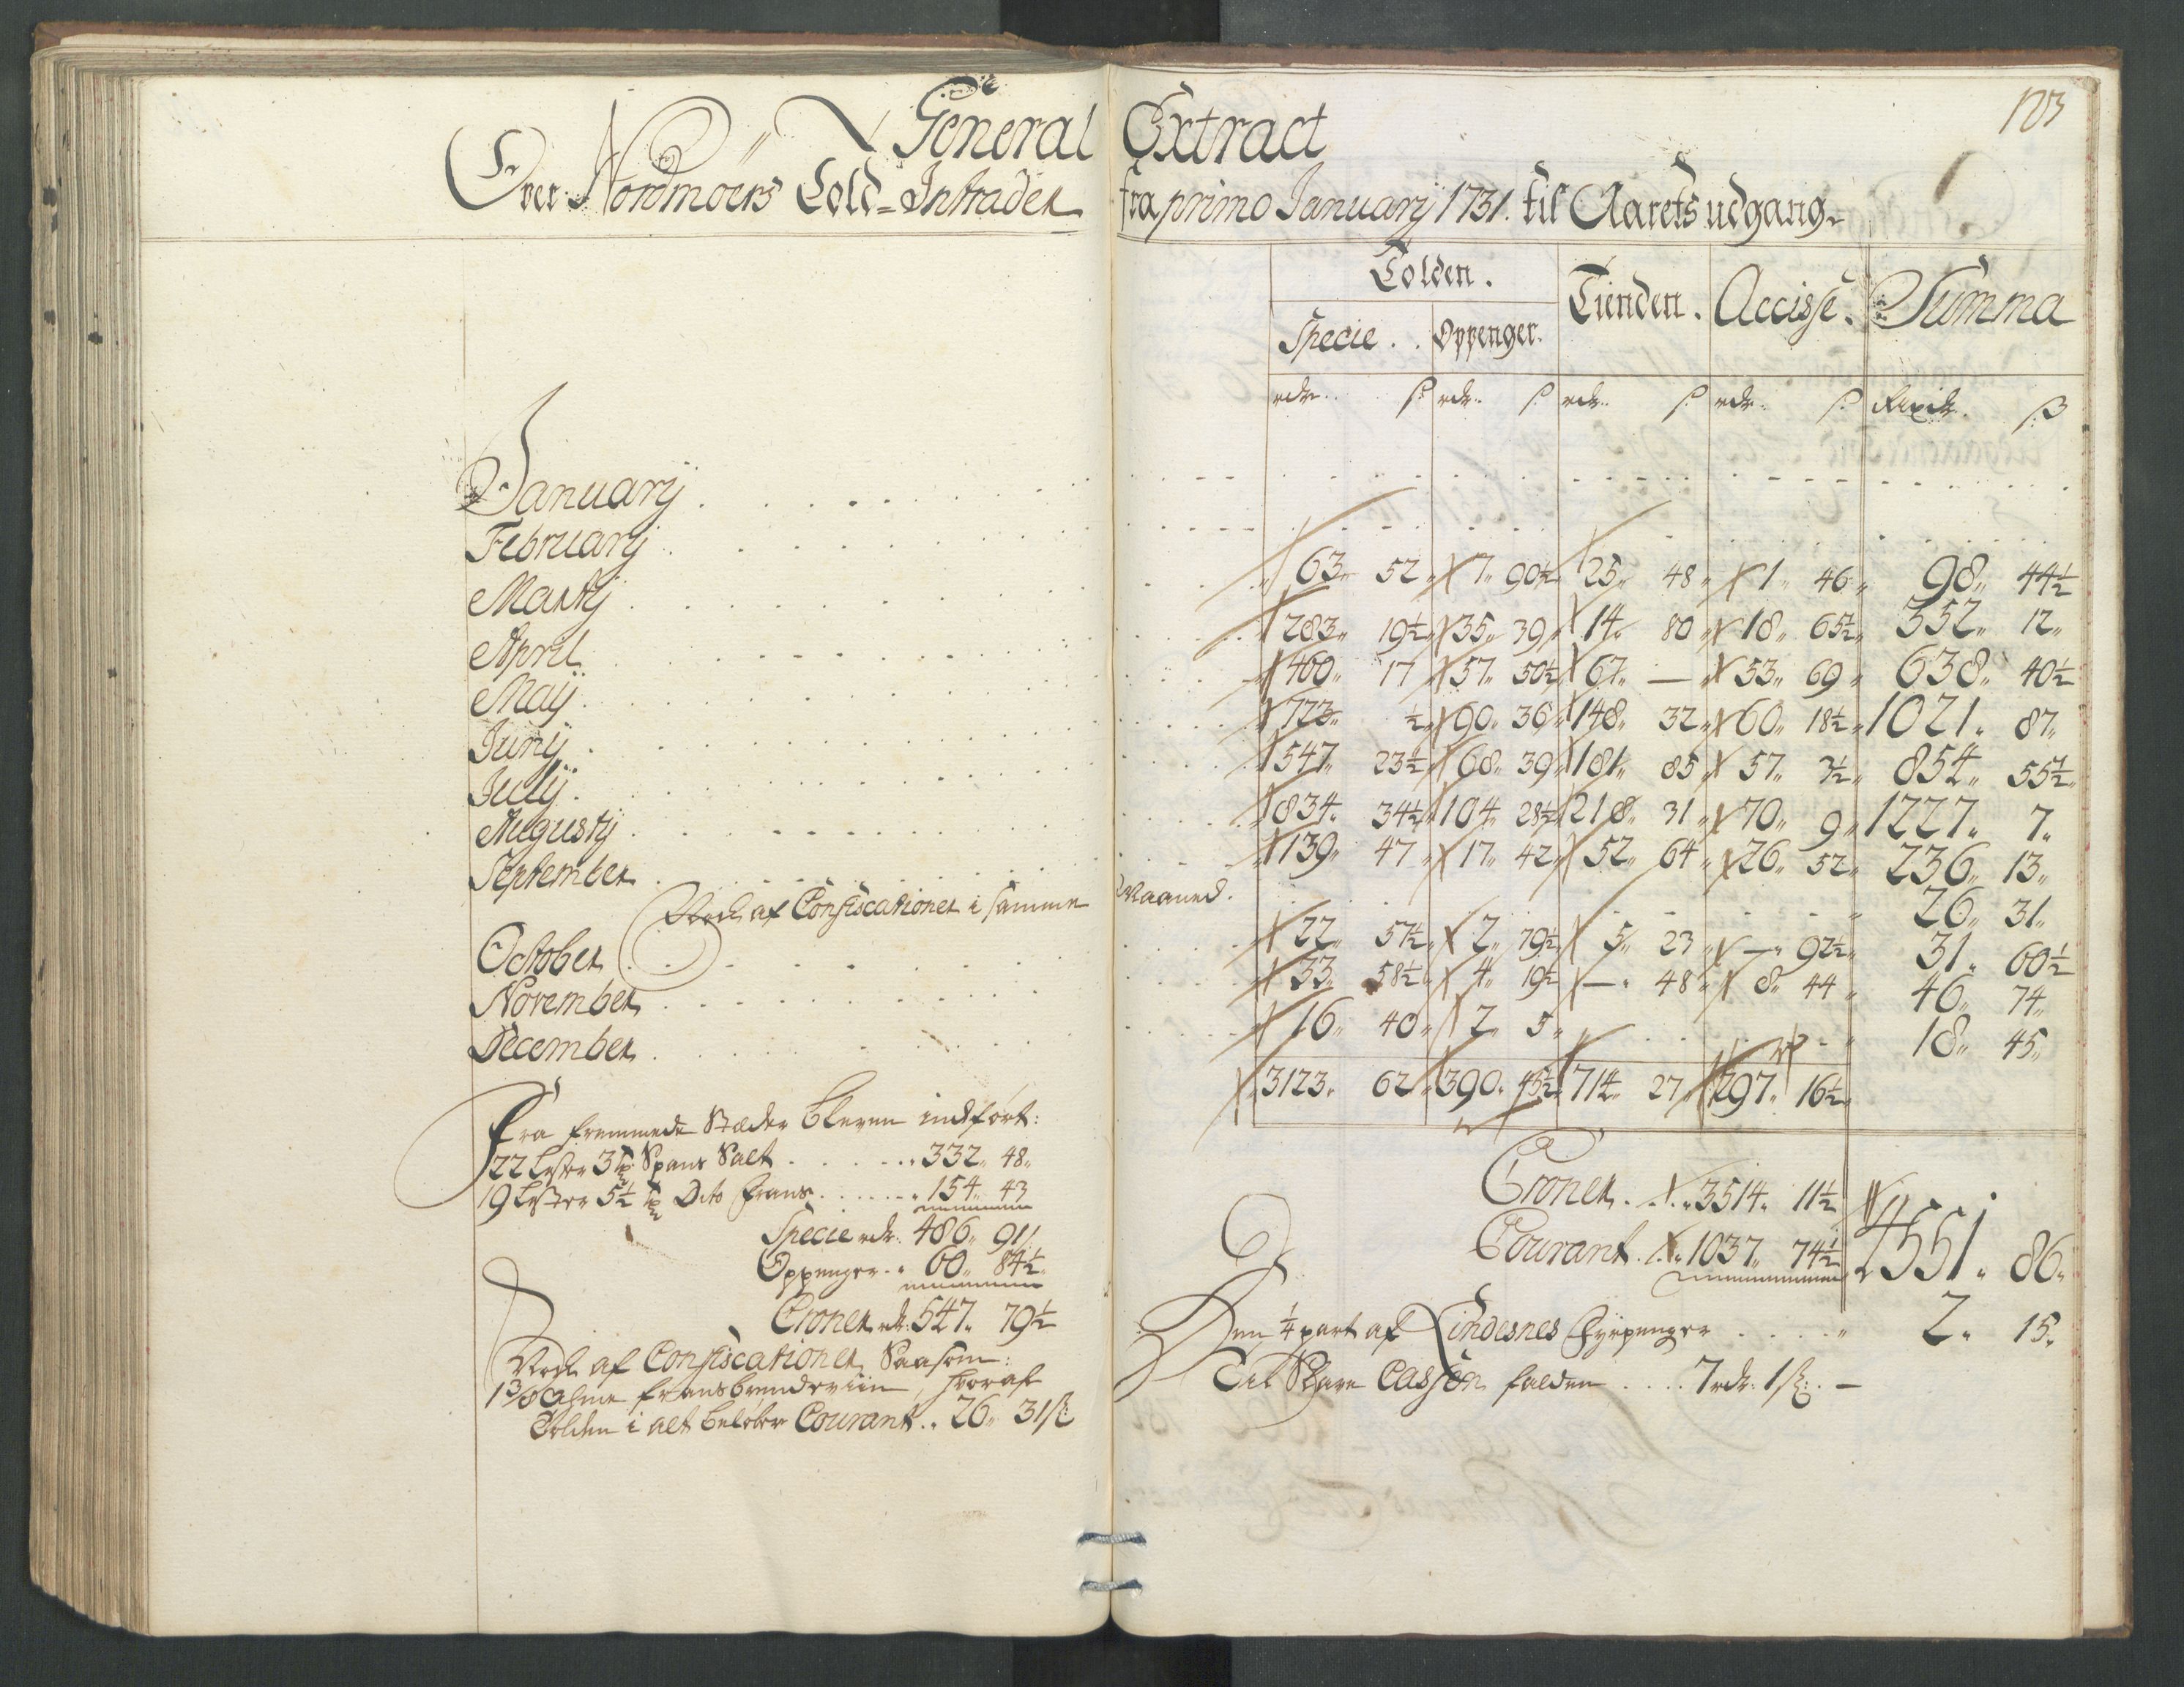 103
General Extract
Over Nordmoers Told=Intrader fra primo Januarij 1731. til Aarets udgang
Tolden. Tienden. Accisse. Summa
Specie. Oppenger.
rdr. ß rdr. ß rdr. ß rdr. ß Rixdr. ß
Januarij
Februarij
Martij 63 52 7 90½ 25 48 1 46 98 44½
April 283 19½ 35 39 14 80 18 65½ 352 12
Maij 460 17 57 50½ 67 — 53 69 638 40½
Junij 723 ½ 90 36 148 32 60 18½ 1021 87
Julij 547 23½ 68 39 181 85 57 4½ 854 55½
Augustij 834 34½ 104 28½ 218 31 70 9 1227 7
September 139 47 17 42 52 64 26 52 236 13
Nock af Confiscationer i samme Maaned. 26 31
October 22 57½ 2 79½ 5 23 — 92½ 31 60½
November 33 58½ 4 19½ — 48 8 44 46 74
December 16 40 2 5 18 45
3123 62 390 45½ 714 27 297 16½
Croner 3514 11½
Courant 1037 74½ 4551 86
Den ¼ part af Lindesnes Fyrpenger 2 15
Til Slave Cassen falden 7 rdr. 1 ß. —
Fra fremmede Stæder bleven indført:
22 Lester 3 Spans Salt 332 48
19 Lester 5½ Dito Frans 154 43
Specie rdr. 486 91
Oppenger 60 84½
Croner rdr. 547 79½
Nock af Confiscationer Saasom:
1 3/8 Ahme fransbrendeviin, hvoraf
Tolden i alt beløber Courant 26 31 ß